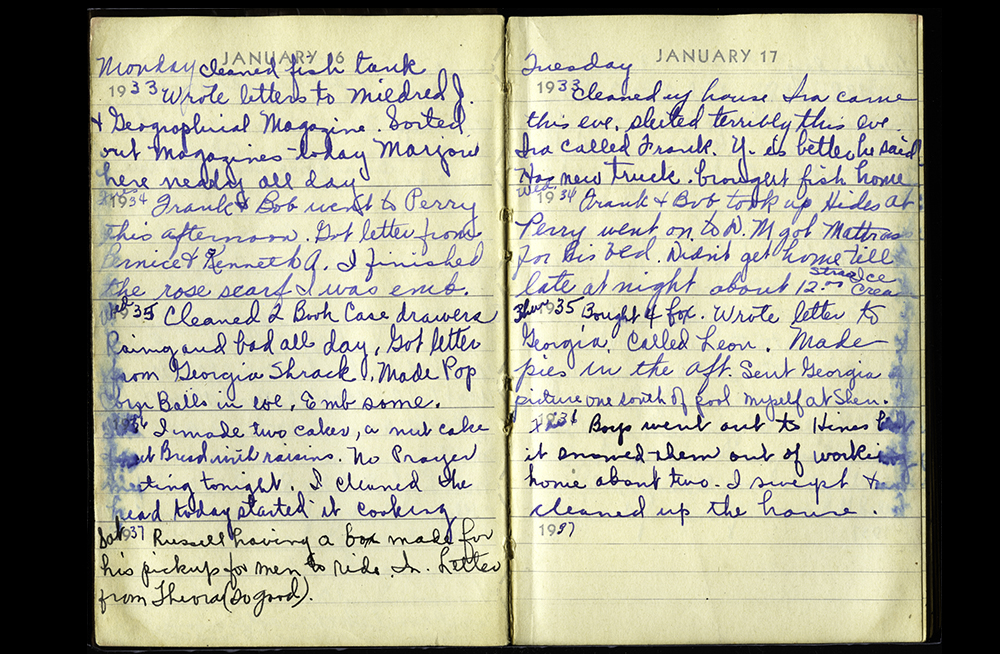 JANUARY 16
Monday cleaned fish tank
1933 Wrote letters to Mildred J.
& Geographical Magazine. Sorted
out Magazines today Margone
here nearly all day
1934 Frank & Bob went to Perry
this afternoon. Got letter from
Bernice & Kenneth A. I finished
the rose scarf I was emb.
Wed 1935 Cleaned 2 Book Case drawers
Rainy and bad all day, Got letter
from Georgia Shrack. Made Pop
Corn Balls in eve, Emb some.
1936 I made two cakes, a nut cake
Bread with raisins. No Prayer
Meeting tonight. I cleaned the
head today started it cooking
Sat 1937 Russell having a box made for
his pickup for men to ride In. Letter
from Theora (So good).
JANUARY 17
Tuesday
1933 Cleaned up house. Ira came
this eve. sleeted terribly this eve.
Ira called Frank. Y. is better he said
Has new truck. brought fish home
Wed. 1934 Frank & Bob took up Hides at
Perry went on to D. M got Mattrass
for his bed. Didn't get home till
late at night about 12.00 Ice Crea
Thur 1935 Bought 4 fox. Wrote letter to
Georgia. Called Leon. Made
pies in the aft. Sent Georgia
picture one south of pool myself at Shen.
1936 Boys went out to Hines
it snowed them out of working
home about two. I swept &
cleaned up the house.
1937